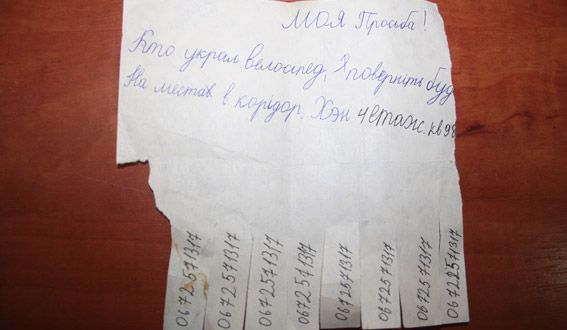 МОЯ Просьба!
Кто украл велосипед, Я поверніть буд
На местах в корідор. Хэн 4етаж. кв 98
0672571317
0672571317
0672571317
0672571317
0672571317
0672571317
0672571317
0672571317